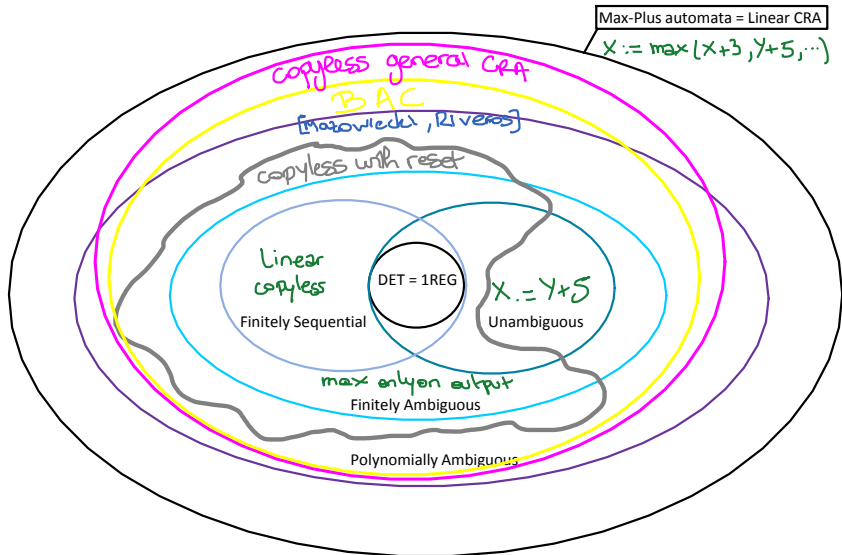 Max-Plus automata = Linear CRA
X := max(X+3, Y+5, ...)
copyless general CRA
BAC
[Mazowiecki, Riveros]
copyless with reset
Linear
copyless
DET = 1REG
X := Y+5
Finitely Sequential
Unambiguous
max only on output
Finitely Ambiguous
Polynomially Ambiguous